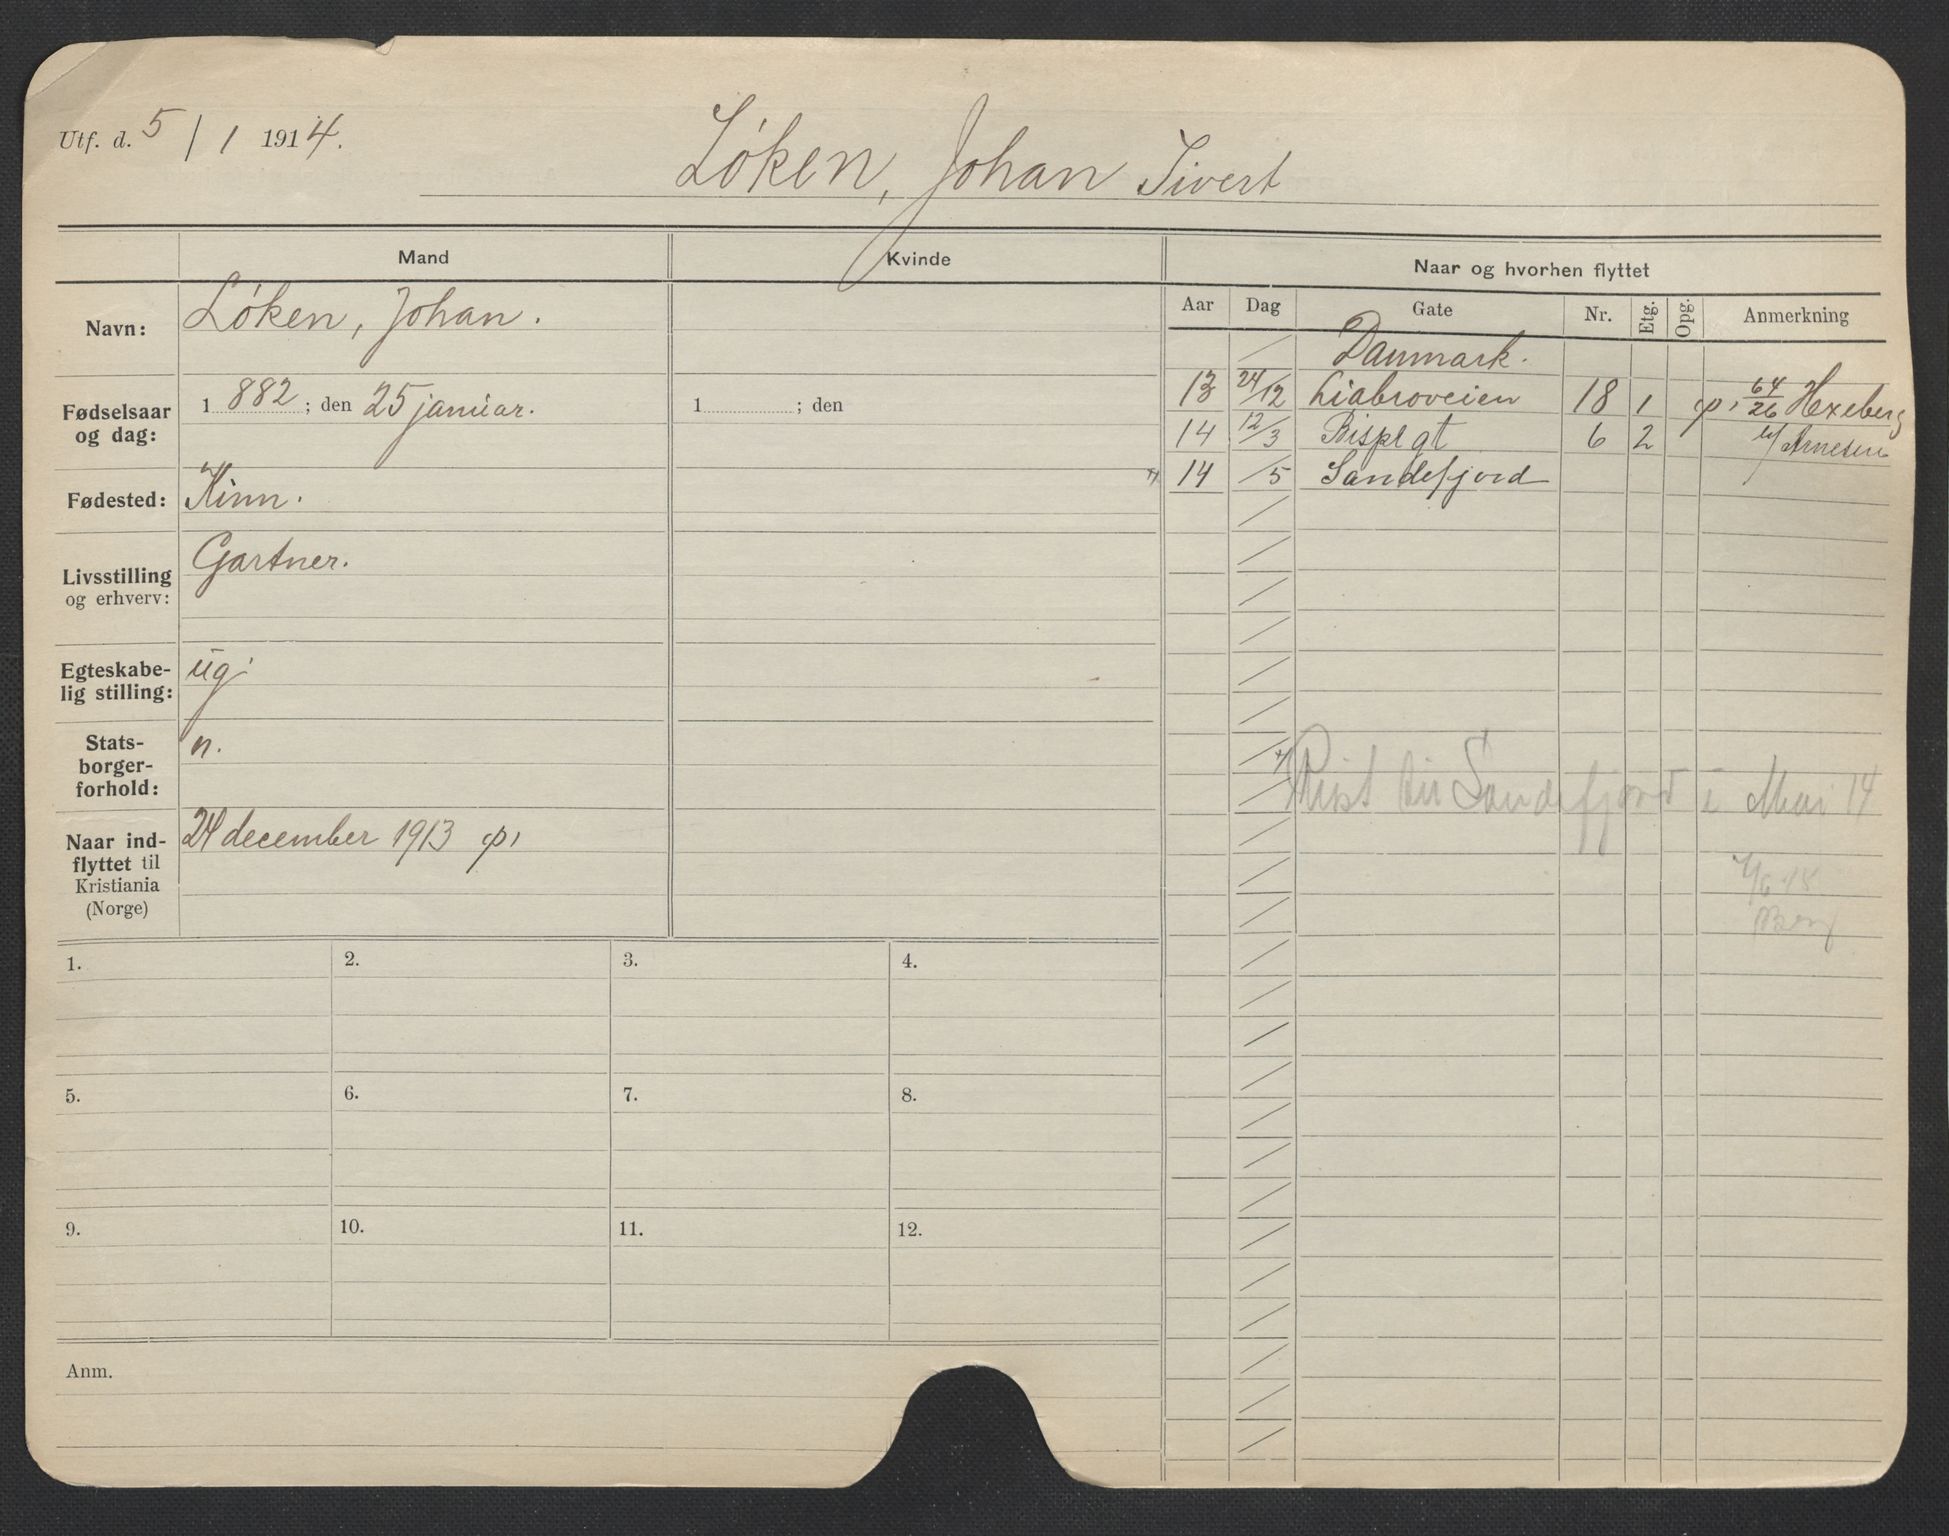 Utf. d. 5 / 1 1914.
Løken, Johan Sivert
Mand
Kvinde
Naar og hvorhen flyttet
Navn:
Løken, Johan.
Fødselsaar og dag:
1 882 ; den 25 januar.
1 ; den
Fødested:
Kinn.
Livsstilling og erhverv:
Gartner.
Egteskabe-
lig stilling:
ug.
Stats-
borger-
forhold:
n.
Naar ind-
flyttet til
Kristiania
(Norge)
24 december 1913 p,
Aar Dag Gate Nr. Etg. Opg. Anmerkning
Danmark.
13 24/12 Liabroveien 18 1 p, 64/26 Hexeberg
14 12/3 Bispegt 6 2 v/ Arnesen
14 /5 Sandefjord
Reist til Sandefjord i Mai 14
1. 2. 3. 4.
5. 6. 7. 8.
9. 10. 11. 12.
Anm.